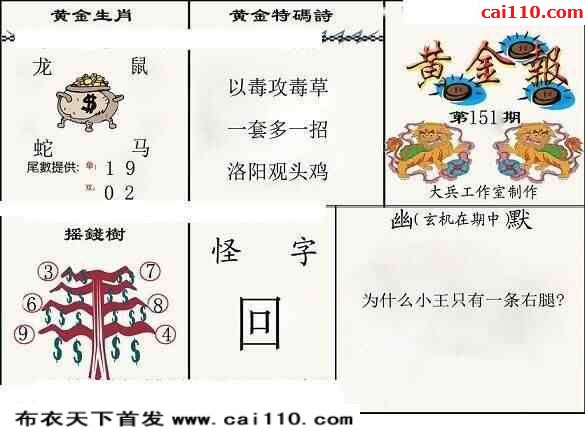 cai110.com
黄金生肖
龙 鼠
$
蛇 马
尾數提供: 单: 1 9
双: 0 2
黄金特碼詩
以毒攻毒草
一套多一招
洛阳观头鸡
黄金報
第151期
大兵工作室制作
摇錢樹
③ ⑦
⑥ ⑧
⑨ ④
怪字
回
幽(玄机在期中)默
为什么小王只有一条右腿?
布衣天下首发 www.cai110.com